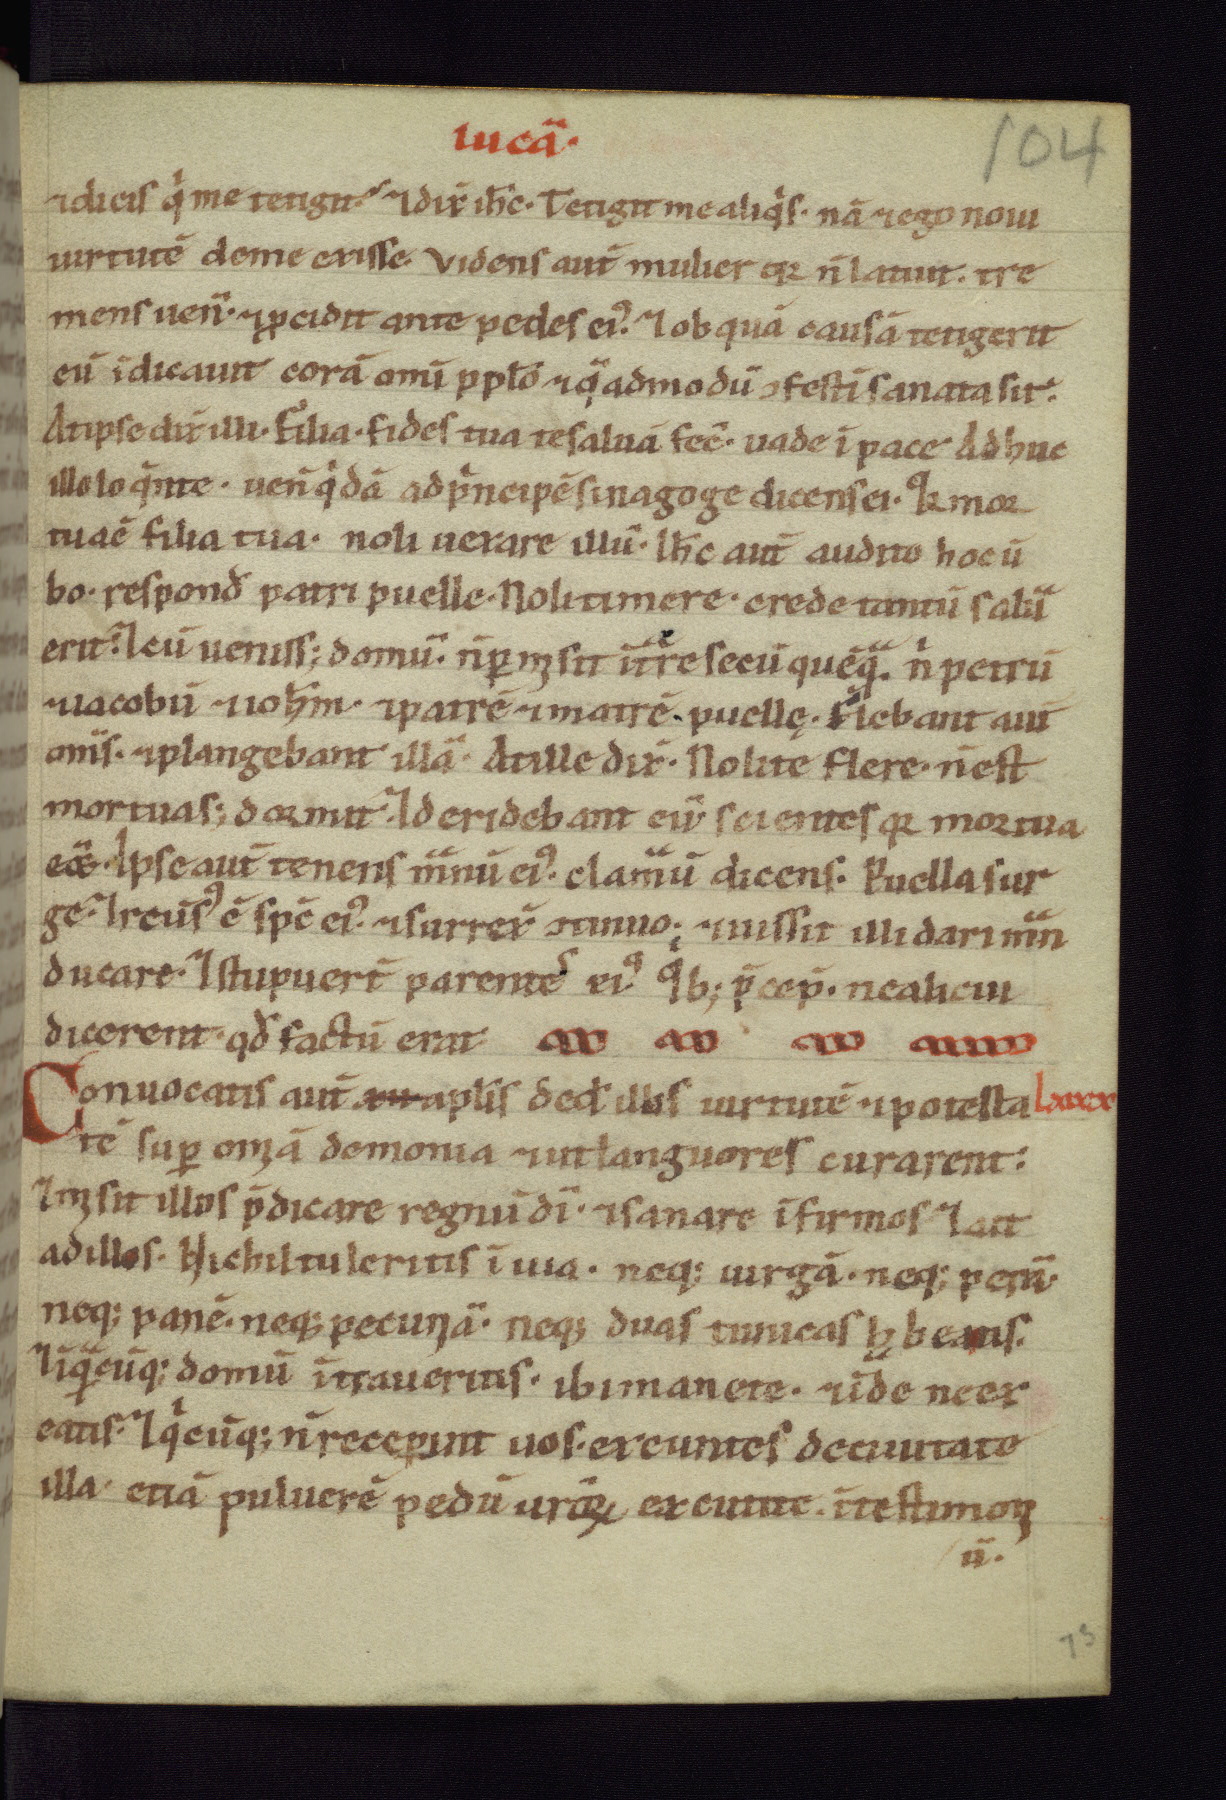 lucā·
104
⁊dicis qi me tetigit· ⁊dix̄ ih̄c· Tetigit me aliqis· nā ⁊ego noui
uirtutē deme exisse· Videns aut̄ mulier qr n̄ latuit· tre
mens uen̄· ⁊p̱cidit ante pedes ei⁹· ⁊ob quā causā tetigerit
eū īdicauit corā omī pplō ⁊q̄admodū ꝯfestī sanata sit·
At ipse dix̄ illi· Filia· fides tua te saluā fec̄· uade ī pace Adhuc
illo loq̄nte· uen̄ qidā ad pincipē sinagoge dicens ei· Qr mor
tua ē filia tua· noli uexare illū· Ih̄c aut̄ audito hoc ū
bo· respond̄ patri puelle· Noli timere· crede tantū salū
erit· ⁊cū ueniss; domū· n̄ p̱mı̨sit īt̄re secū quēq̄· ni petrū
⁊iacobū ⁊ioh̄m· ⁊patrē ⁊matrē· puellę· Flebant aut̄
om̄s· ⁊plangebant illā· At ille dix̄· Nolite flere· n̄ est
mortua s; dormit· ⁊deridebant eū scientes qr mortua
eēt· Ipse aut̄ tenens m̄nū ei⁹· clam̄ū dicens· Puella sur
ge· ⁊reūs⁹ ē sp̄c ei⁹· ⁊surrex̄ ꝯtinuo; ⁊iussit illi dari m̄n
ducare· ⁊stupuer̄t parentes ei⁹ qib; p̄cep̄· ne alicui
dicerent qd̄ factū erat
Conuocatis aut̄ apl̄is ded̄ illos uirtutē ⁊potesta lxxxx
tē sup̱ om̄ia demonia ⁊ut languores curarent:
⁊mı̨sit illos p̄dicare regnū dī· ⁊sanare īfirmos ⁊ait
ad illos· Nichil tuleritis ī uia· neq; uirgā· neq; perā·
neq; panē· neq; pecuniā· neq; duas tunicas hַbeatis·
⁊ī q̄cūq; domū ītraueritis· ibi manete· ⁊īde ne ex
eatis· ⁊qicūq; n̄ recep̱int uos· exeuntes de ciuitate
illa· etiā puluerē pedū ur̄oꝝ excutite· ī testimoni
ū·
73